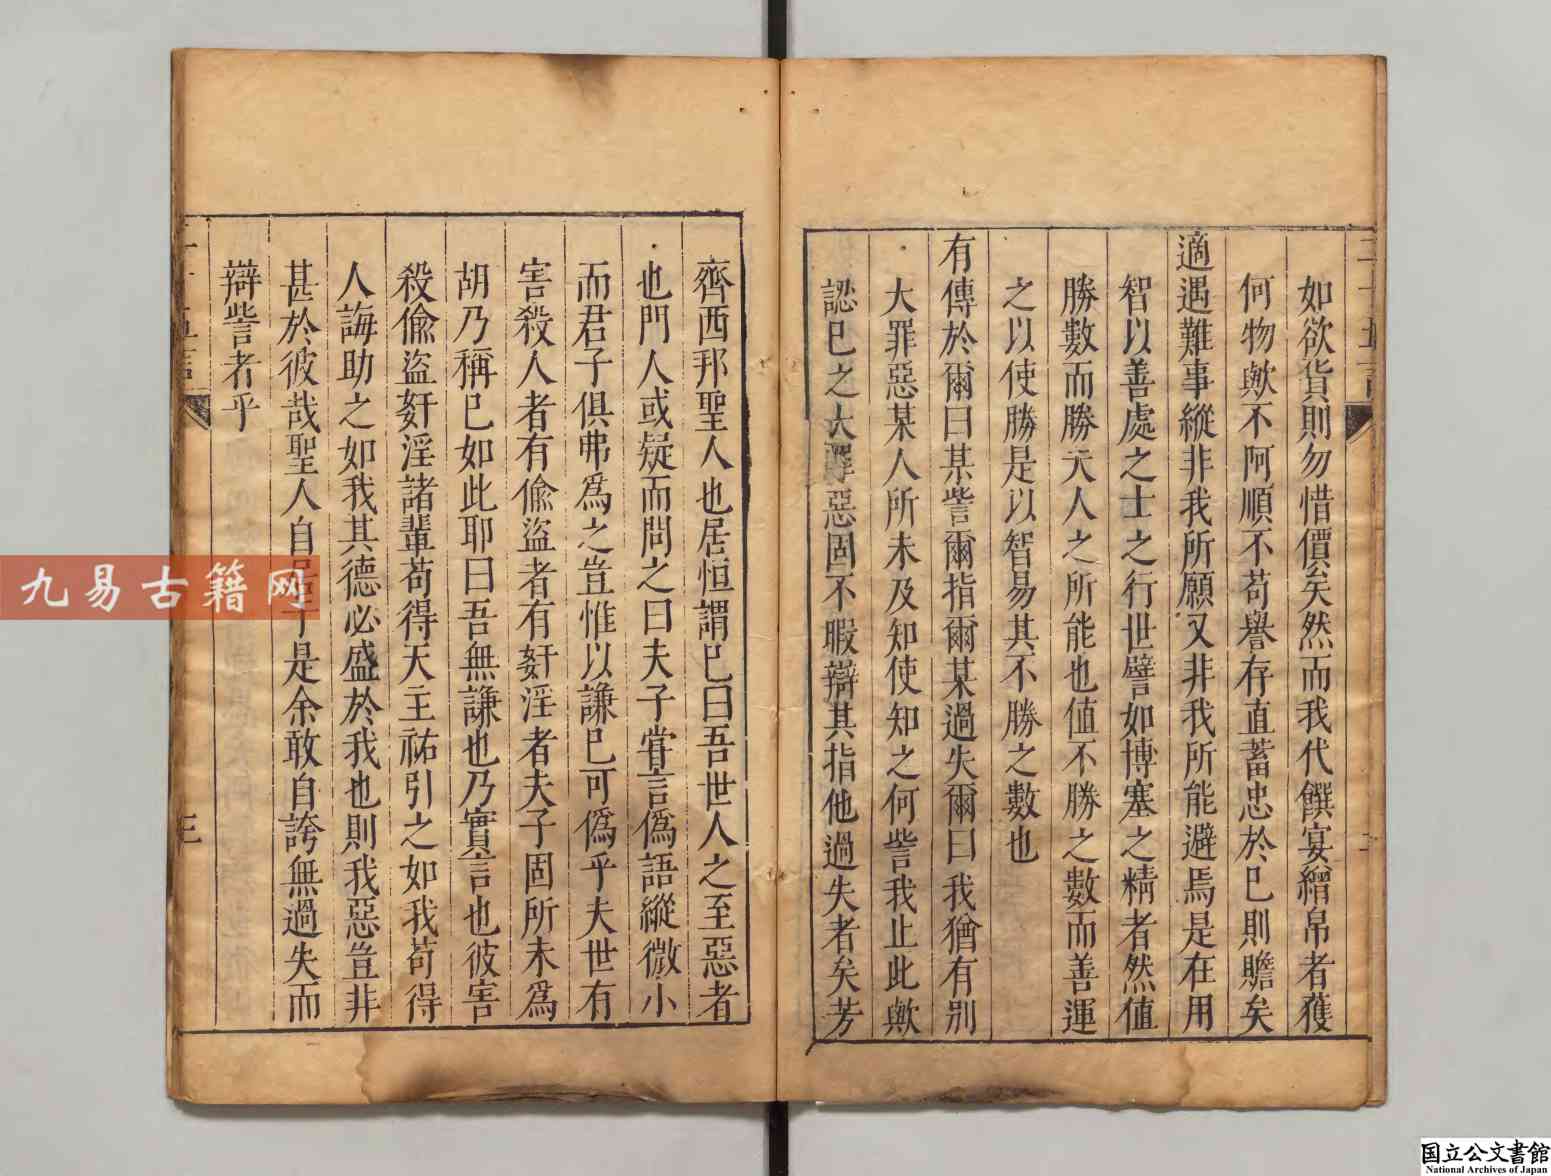 如欲貨則勿惜價矣然而我代饌宴繒帛者獲
何物歟不阿順不苟譽存直蓄忠於已則贍矣
適遇難事縱非我所願又非我所能避焉是在用
智以善處之士之行世譬如博塞之精者然值
勝數而勝天人之所能也值不勝之數而善運
之以使勝是以智易其不勝之數也
有傳於爾曰某訾爾指爾某過失爾曰我猶有別
大罪惡某人所未及知使知之何訾我止此歟
認已之大罪惡固不暇辯其指他過失者矣芳
齊西邦聖人也居恒謂已曰吾世人之至惡者
也門人或疑而問之曰夫子甞言僞語縱微小
而君子俱弗爲之豈惟以謙已可僞乎夫世有
害殺人者有偸盜者有奸淫者夫子固所未爲
胡乃稱已如此耶曰吾無謙也乃實言也彼害
殺偸盜奸淫諸輩苟得天主祐引之如我苟得
人誨助之如我其德必盛於我也則我惡豈非
甚於彼哉聖人自是余敢自誇無過失而
辯訾者乎
二十五言
三
九易古籍网
国立公文書館
National Archives of Japan